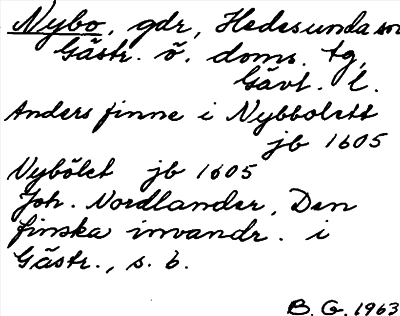 Nybo, gdr, Hedesunda sn
Gästr. ö. doms. tg,
Gävl. l.
Anders finne i Nybbolett
jb 1605
Nybölet jb 1605
Joh. Nordlander, Den
finska invandr. i
Gästr., s. 6.
B. G. 1963